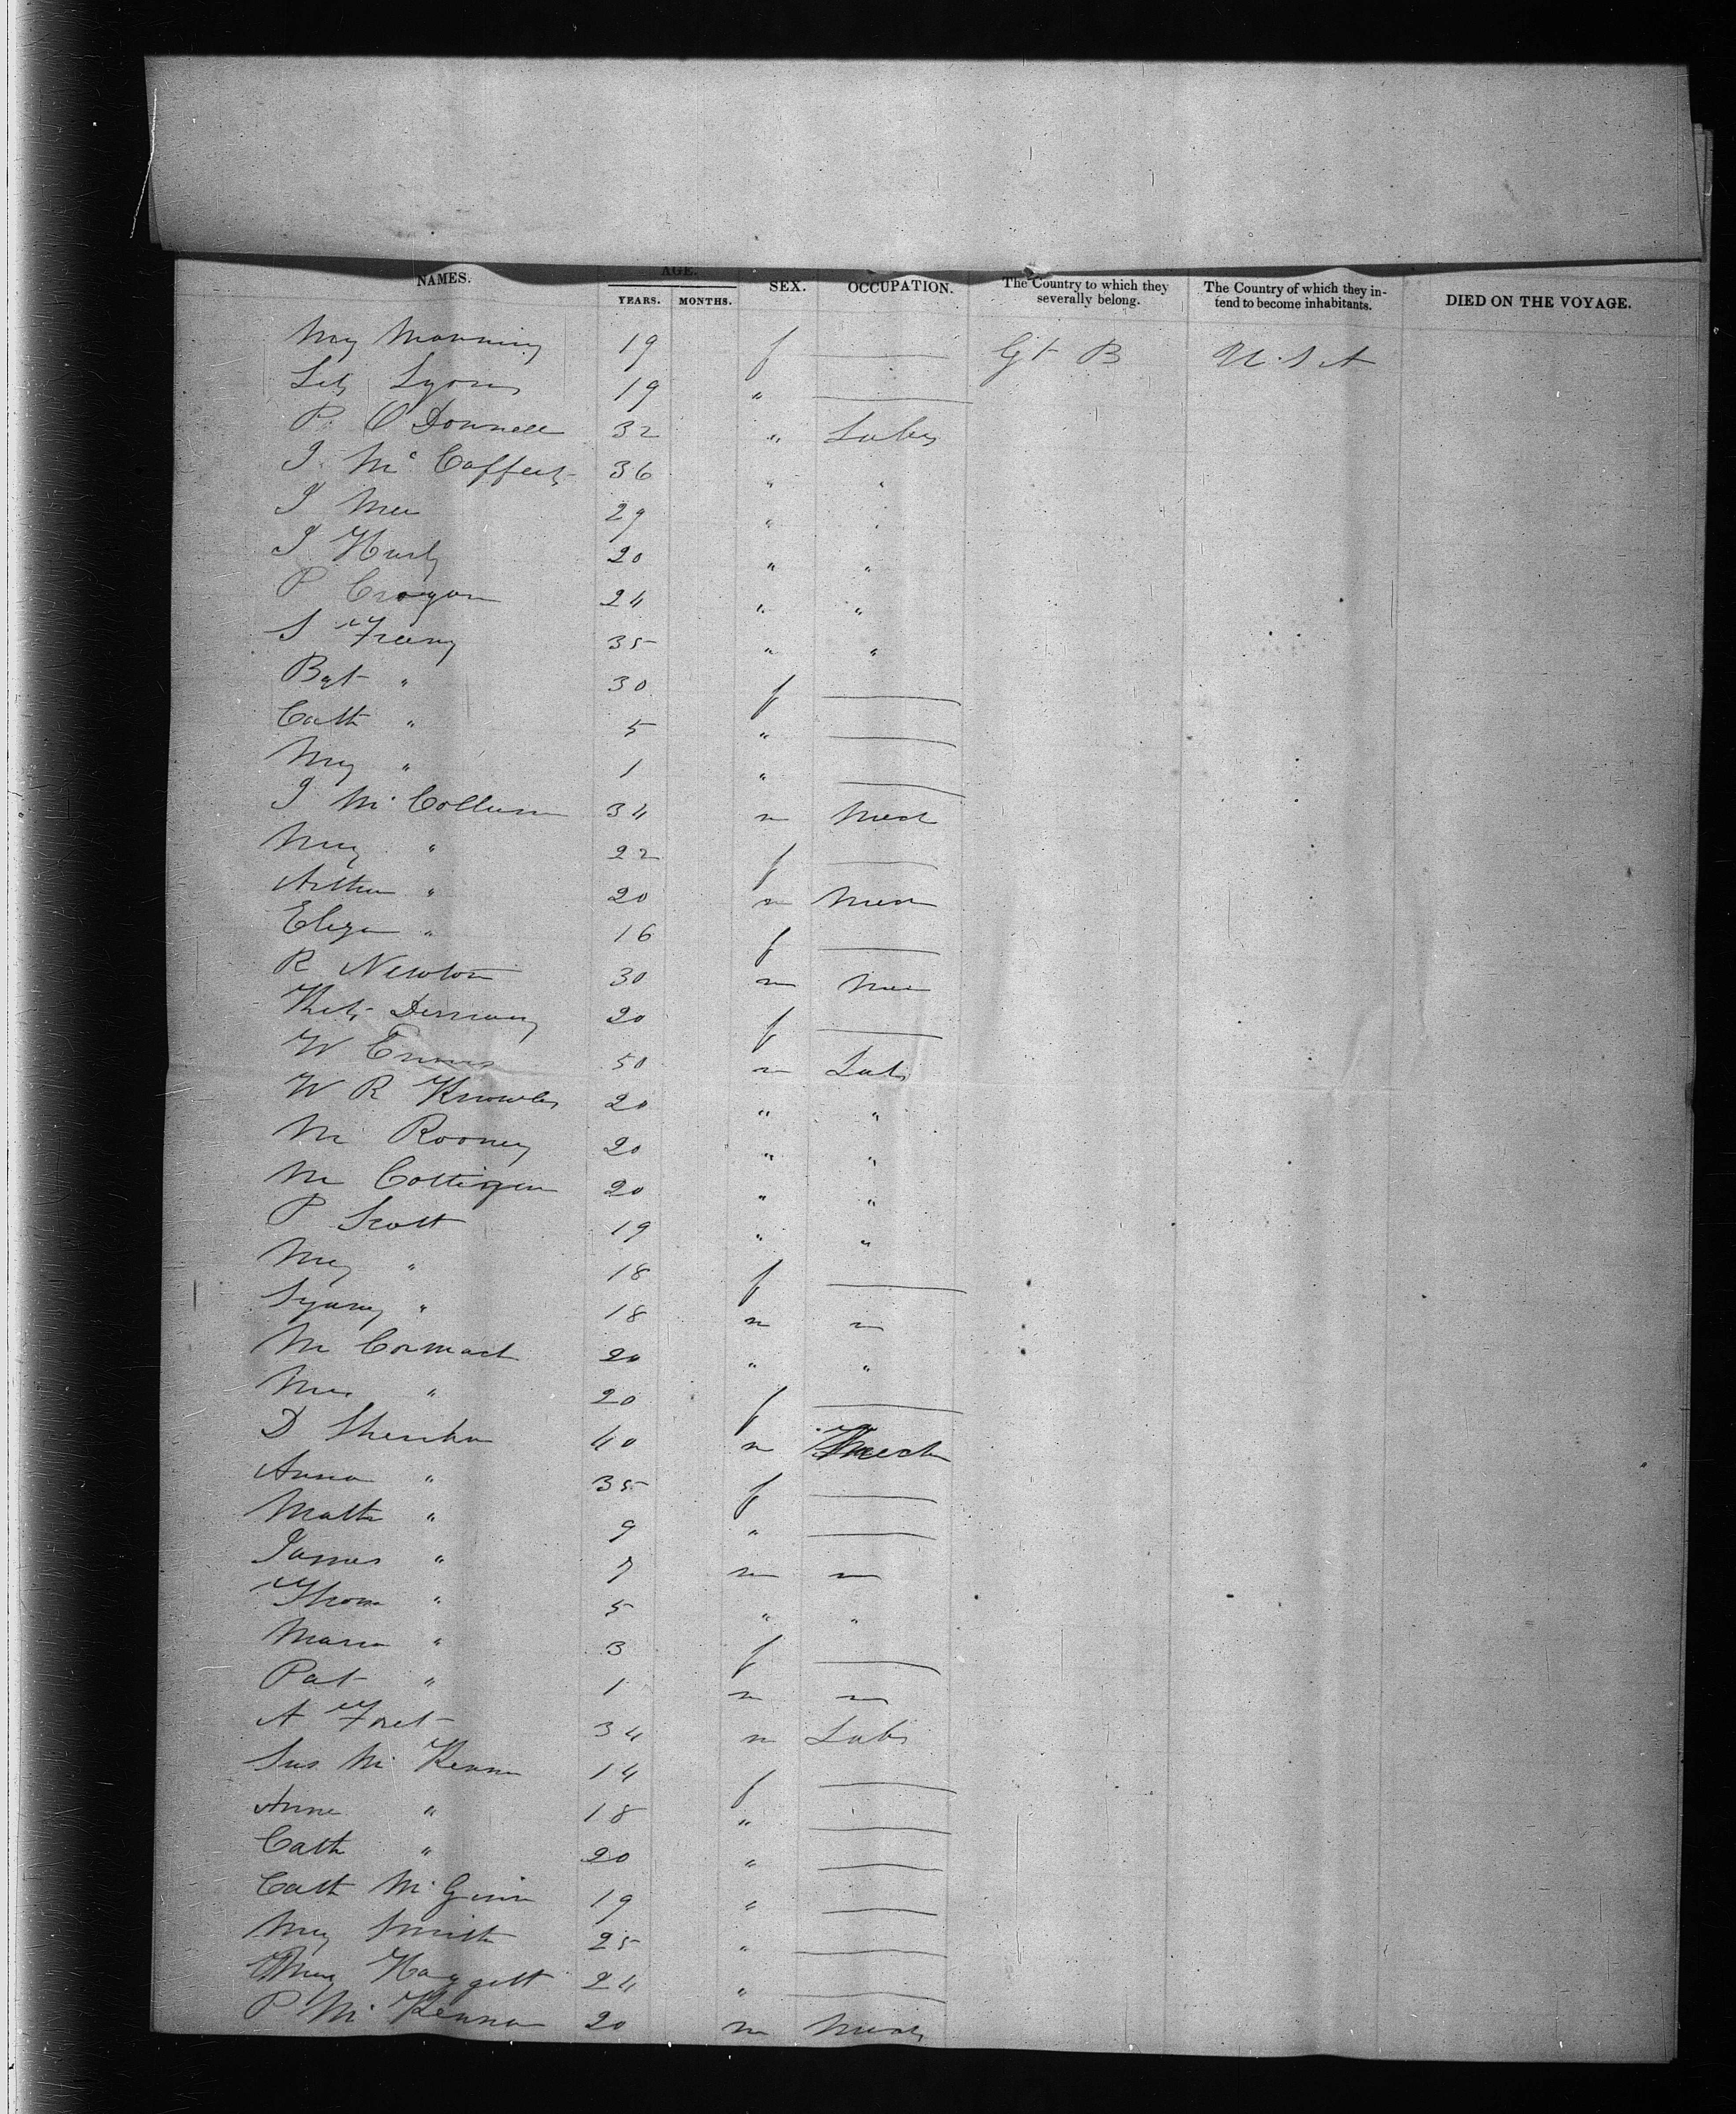 NAMES. AGE. SEX. OCCUPATION. The Country to which they severally belong. The Country of which they intend to become inhabitants. DIED ON THE VOYAGE.
YEARS. MONTHS.
Mary Manning 19 f — Gt B U.S A
Lyons 19 " —
P. O'Donnell 32 " Labr
J. Mc Caffert 36 " "
J 29 " "
J Hurly 20 " "
P Crogan 24 " "
S Freeny 35 " "
Bgt " 30 f —
Cath " 5 " —
My " 1 " —
J Mc Collum 34 m Mech
My " 22 f —
Arthur " 20 m Mech
Eliza " 16 f —
R Newton 30 m
20 f —
W 50 m Labr
W R Knowles 20 " "
M Rooney 20 " "
M Cottigan 20 " "
P Scott 19 " "
My " 18 f —
Sydney " 18 m —
M Cormack 20 " "
" 20 f —
D Sheridan 40 m Mech
Anna " 35 f —
Matth " 9 " —
James " 7 m —
Thom " 5 " "
Maria " 3 f —
Pat " 1 m —
A 34 m Labr
Sus Mc Kenna 14 f —
Anne " 18 " —
Cath " 20 " —
Cath McGinn 19 " —
My Smith 25 " —
Haggett 24 " —
P Mc Kenna 20 m Mech